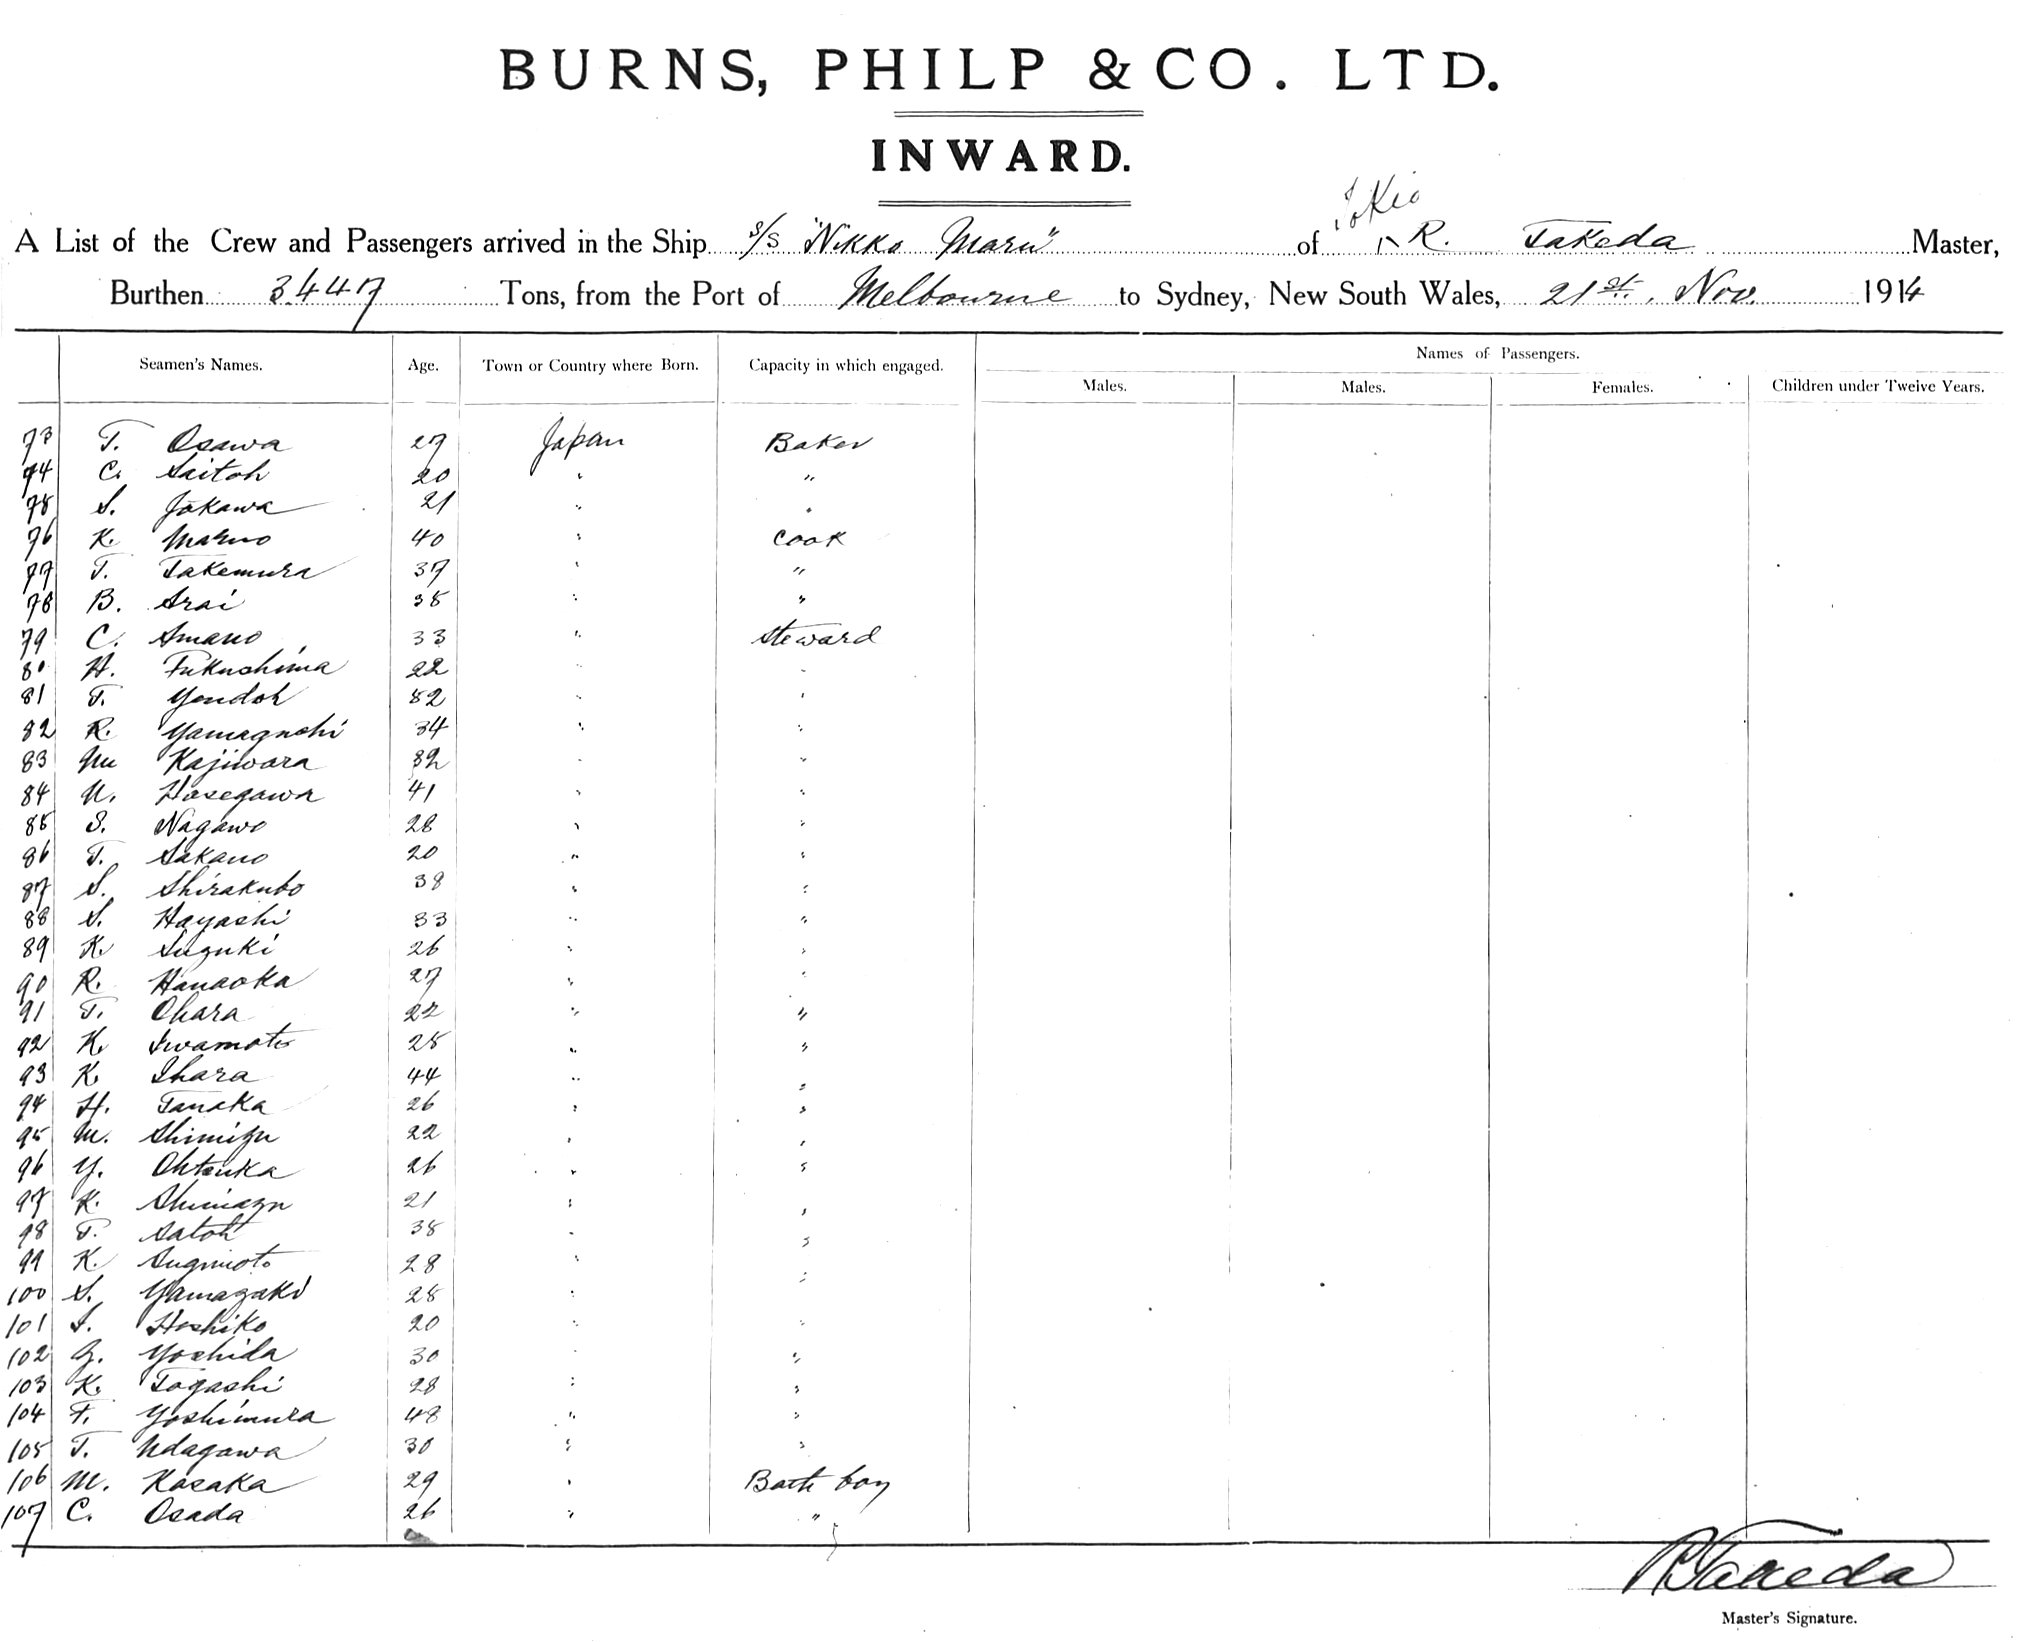 BURNS, PHILP & CO. LTD.
INWARD.
Tokio
A List of the Crew and Passengers arrived in the Ship s/s "Nikko Maru" of R. Takeda Master,
Burthen 3447 Tons, from the Port of Melbourne to Sydney, New South Wales, 21st. Nov. 1914
Names of Passengers.
Seamen's Names. Age. Town or Country where Born. Capacity in which engaged.
Males. Males. Females. Children under Twelve Years.
73 T. Osawa 27 Japan Baker
74 C. Saitoh 20 " "
75 S. Jokawa 21 " "
76 K. Maruo 40 " Cook
77 T. Takemura 37 " "
78 B. Arai 38 " "
79 C. Amano 33 " Steward
80 H. Fukushima 22 " "
81 T. Yendoh 32 " "
82 R. Yamaguchi 34 " "
83 M Kajiwara 32 " "
84 U. Hasegawa 41 " "
85 S. Nagawo 28 " "
86 T. Sakano 20 " "
87 S. Shirakubo 38 " "
88 S. Hayashi 33 " "
89 K. Suzuki 26 " "
90 R. Hanaoka 27 " "
91 T. Ohara 22 " "
92 K. Iwamoto 28 " "
93 K. Ihara 44 " "
94 H. Tanaka 26 " "
95 M. Shimizu 22 " "
96 Y. Ohtsuka 26 " "
97 K. Shimazu 21 " "
98 T. Satoh 38 " "
99 K. Sugimoto 28 " "
100 S. Yamazaki 28 " "
101 S. Hoshiko 20 " "
102 G. Yoshida 30 " "
103 K. Togashi 28 " "
104 F. Yoshimura 48 " "
105 T. Udagawa 30 " "
106 M. Kosaka 29 " Bath boy
107 C. Osada 26 " "
R Takeda
Master's Signature.